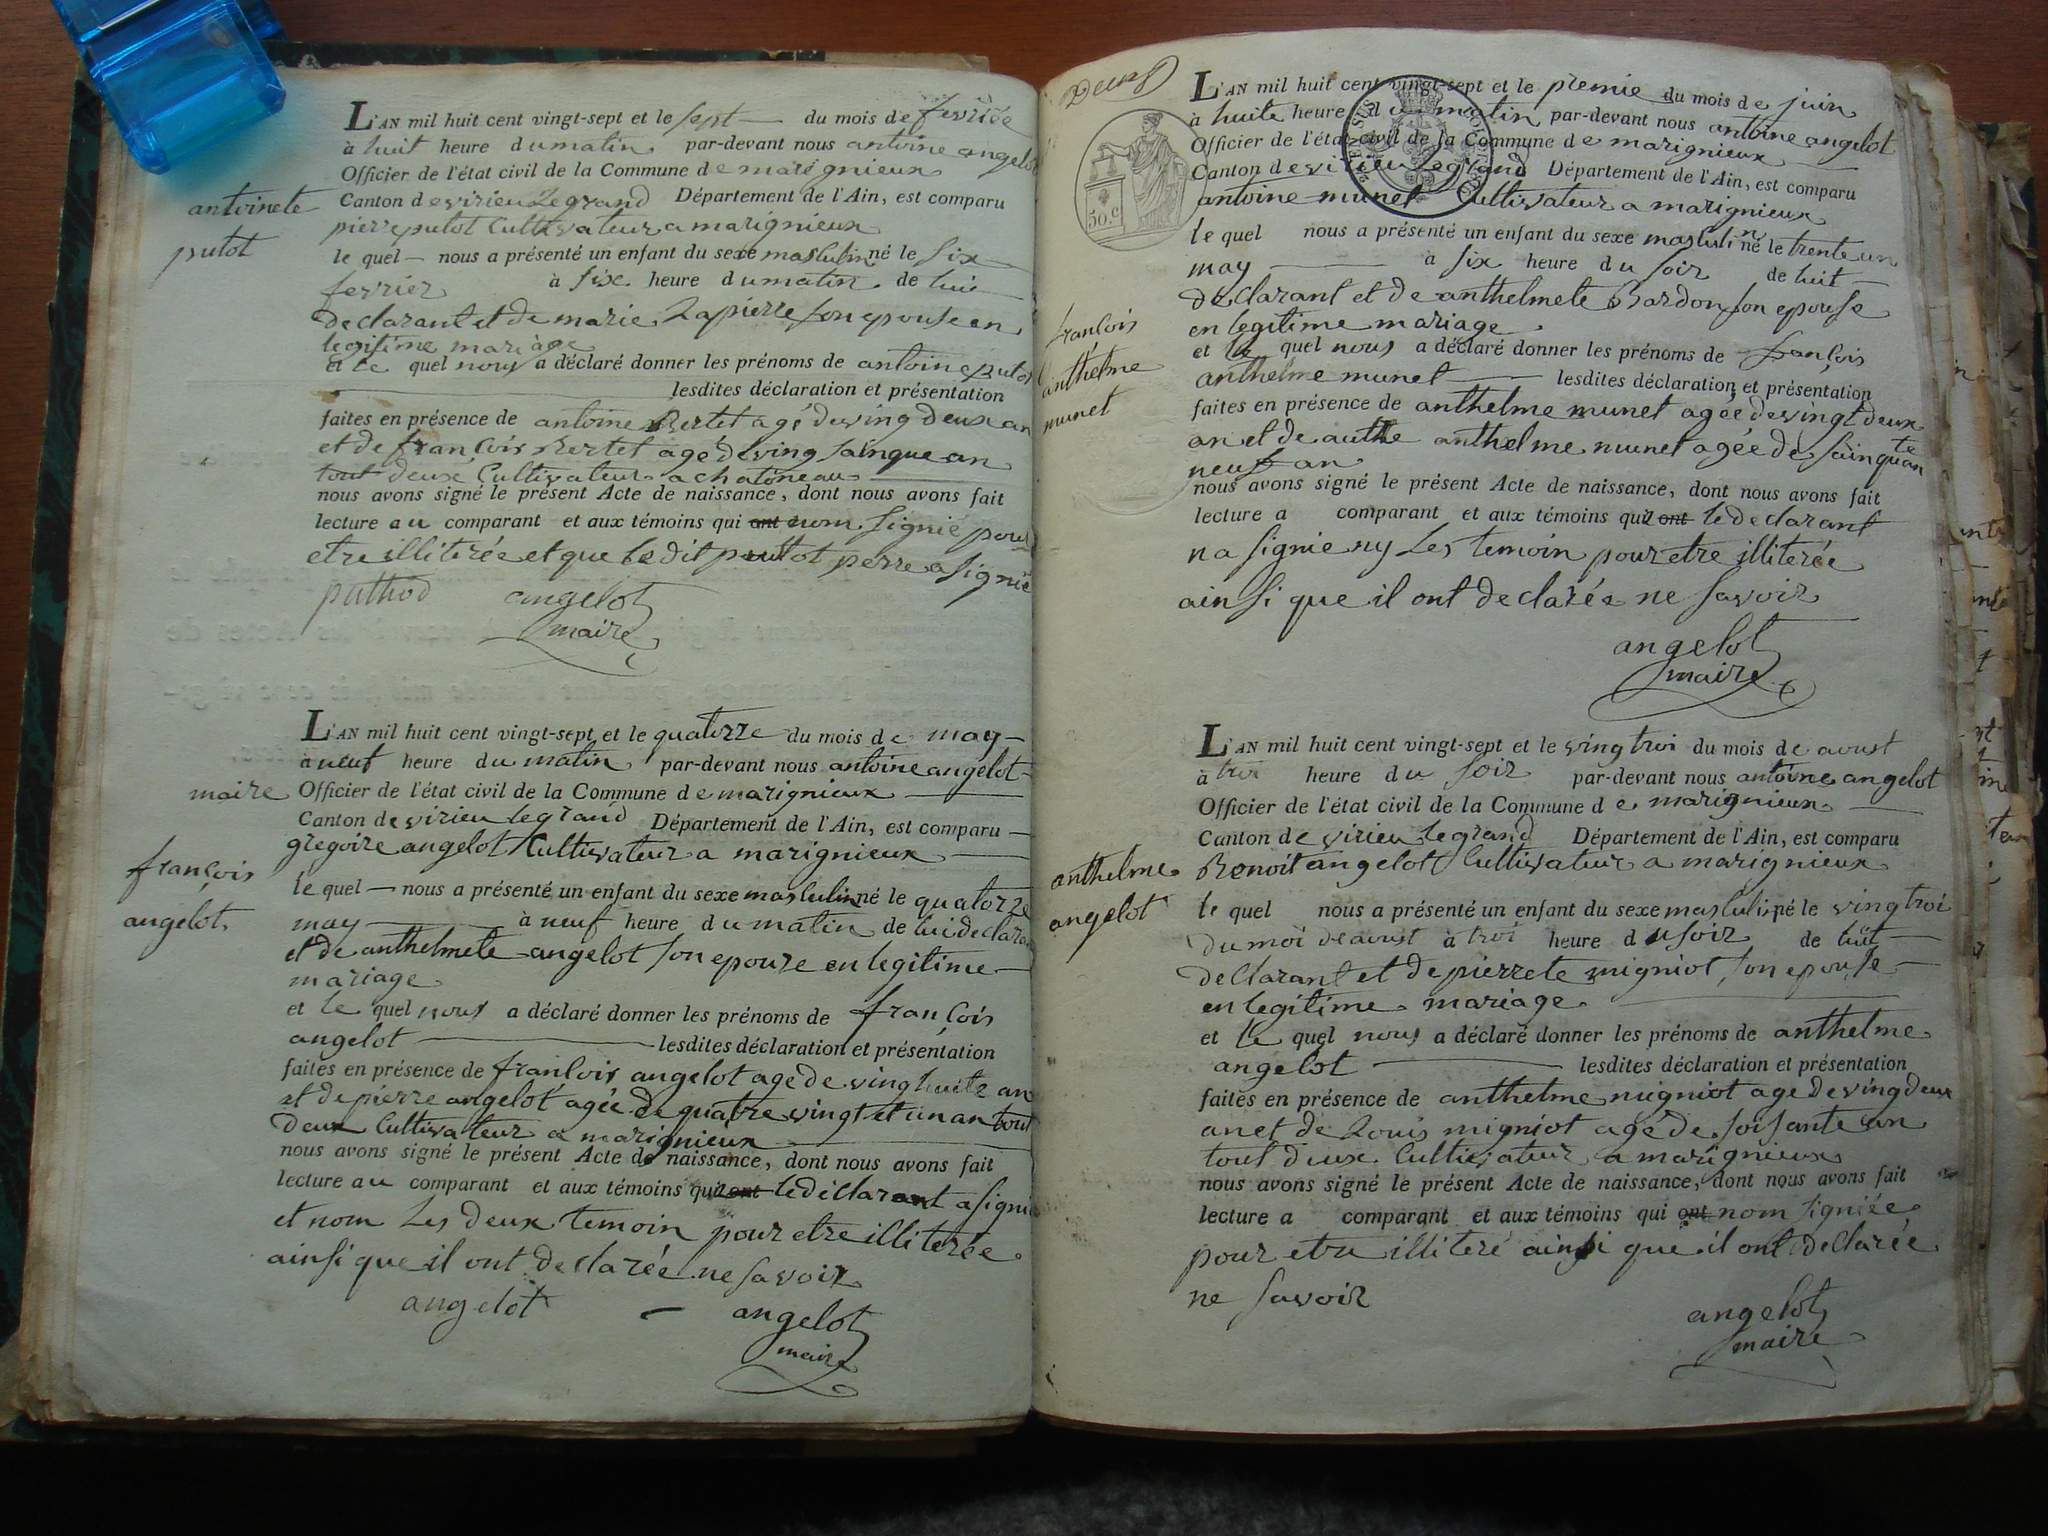 L'AN mil huit cent vingt-sept et le sept du mois de fevriée
à huit heure du matin par-devant nous antoine angelot
Officier de l'état civil de la Commune de marignieux
Canton de virieu Le grand Département de l'Ain, est comparu
pierre putot Cultivateur a marignieux
le quel nous a présenté un enfant du sexe masculin né le six
fevrier à six heure du matin de lui
declarant et de marie Lapierre son epouse en
legitime mariage
et le quel nous a déclaré donner les prénoms de antoine putot
lesdites déclaration et présentation
faites en présence de antoine Bertet agé de ving deux an
et de françois Bertet agé de ving sainque an
tout deux Cultivateur a chatoneau
nous avons signé le présent Acte de naissance, dont nous avons fait
lecture au comparant et aux témoins qui ont nom signié pour
etre illiterée et que le dit puttot perre a signié
puthod angelot
maire
antoinete
putot
L'AN mil huit cent vingt-sept et le quatorze du mois de may
à neuf heure du matin par-devant nous antoine angelot
maire Officier de l'état civil de la Commune de marignieux
Canton de virieu le grand Département de l'Ain, est comparu
gregoire angelot Cultivateur a marignieux
le quel nous a présenté un enfant du sexe masculin né le quatorze
may à neuf heure du matin de lui declara
et de anthelmete angelot son epouze en legitime
mariage
et le quel nous a déclaré donner les prénoms de françois
angelot lesdites déclaration et présentation
faites en présence de françois angelot age de ving huite an
et de pierre angelot agée de quatre vingt et un an tout
deux Cultivateur a marignieux
nous avons signé le présent Acte de naissance, dont nous avons fait
lecture au comparant et aux témoins qui ont le déclarant a signié
et nom Les deux temoin pour etre illiterée
ainsi que il ont declarée ne savoir
angelot angelot
maire
françois
angelot
Deux
50.c
L'AN mil huit cent vingt-sept et le premie du mois de juin
à huite heure du matin par-devant nous antoine angelot
Officier de l'état civil de la Commune de marignieux
Canton de virieu Le grand Département de l'Ain, est comparu
antoine munet Cultivateur a marignieux
le quel nous a présenté un enfant du sexe masculin né le trente un
may à six heure du soir de luit
declarant et de anthelmete Bardon son epouse
en legitime mariage
et le quel nous a déclaré donner les prénoms de françois
anthelme munet lesdites déclaration et présentation
faites en présence de anthelme munet agée de vingt deux
an et de authe anthelme munet agée de sainquante
neuf an
nous avons signé le présent Acte de naissance, dont nous avons fait
lecture a comparant et aux témoins qui ont le declarant
na signie ny Les temoin pour etre illiterée
ainsi que il ont declarée ne savoir
angelot
maire
françois
anthelme
munet
L'AN mil huit cent vingt-sept et le ving troi du mois de aoust
à troi heure du soir par-devant nous antoine angelot
Officier de l'état civil de la Commune de marignieux
Canton de virieu le grand Département de l'Ain, est comparu
Benoit angelot Cultivateur a marignieux
le quel nous a présenté un enfant du sexe masculin né le ving troi
du moi de aoust à troi heure du soir de luit
declarant et de pierrete migniot son epouse
en legitime mariage
et le quel nous a déclaré donner les prénoms de anthelme
angelot lesdites déclaration et présentation
faites en présence de anthelme migniot age de ving deux
an et de Louis migniot agé de soisante an
tout deux Cultivateur a marignieux
nous avons signé le présent Acte de naissance, dont nous avons fait
lecture a comparant et aux témoins qui ont nom signiée
pour etre illiteré ainsi que il ont declarée
ne savoir
angelot
maire
anthelme
angelot